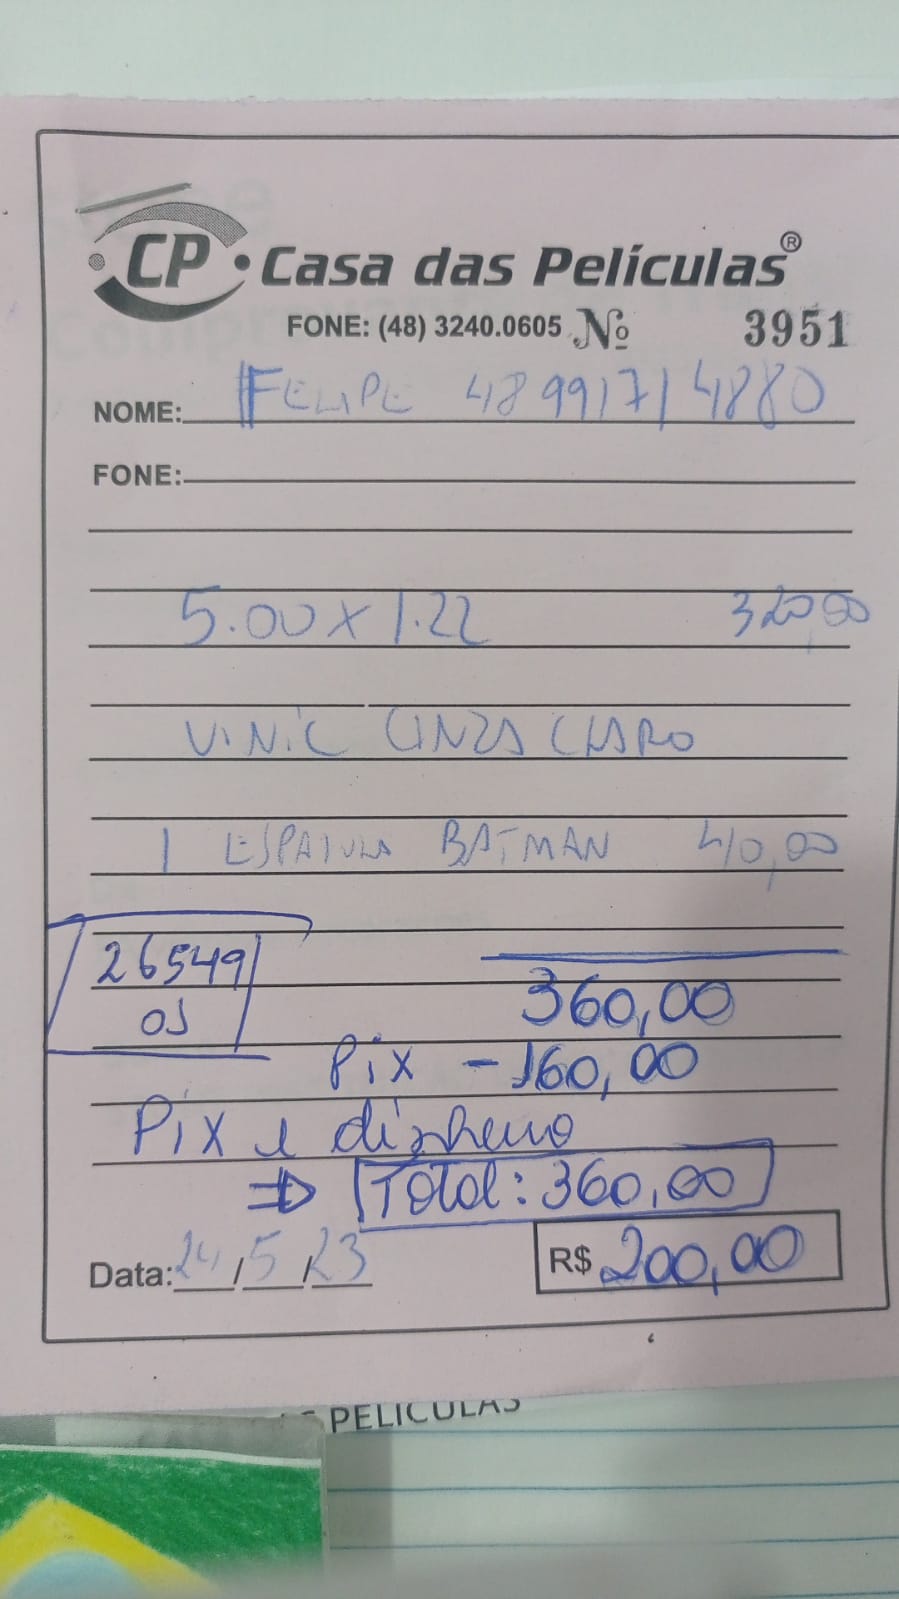 CP Casa das Películas®
FONE: (48) 3240.0605 Nº 3951
NOME: FELIPE 48 99171 4880
FONE:
5.00 x 1.22 320,00
VINIL CINZA CLARO
1 ESPATULA BATMAN 40,00
26549
OS
360,00
Pix - 160,00
Pix e dinheiro
⇒ Total: 360,00
Data: 24/5/23 R$ 200,00
PELICULAS